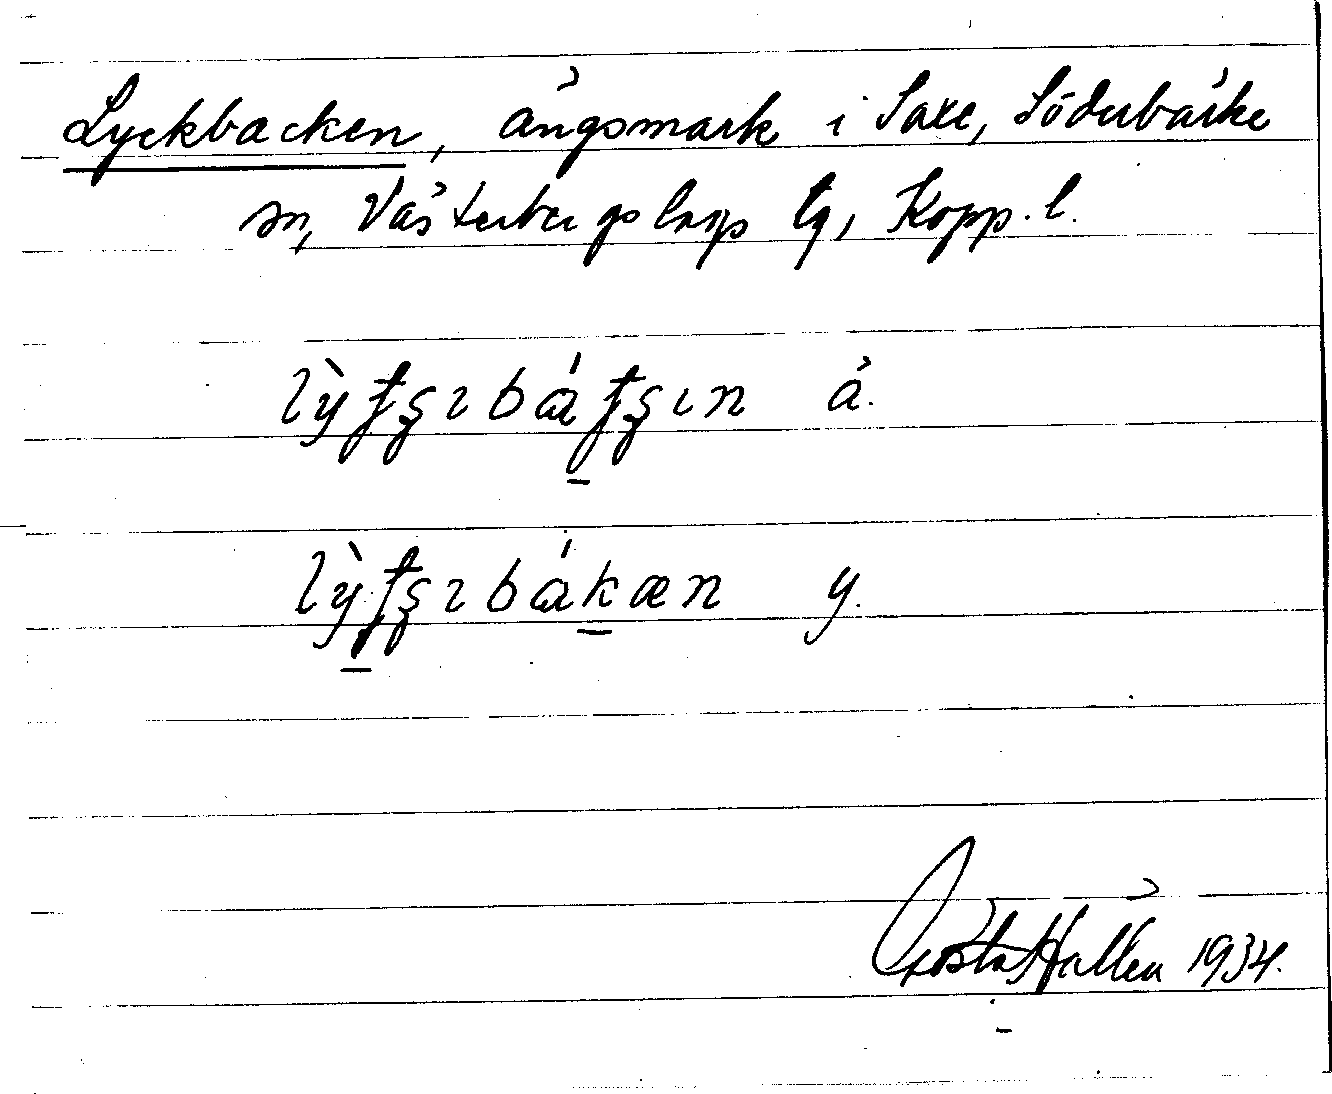 Lyckbacken, ängsmark i Saxe, Söderbärke
sn, Västerbergslags tg, Kopp. l.
ä.
y.
Gösta Hallén 1934.